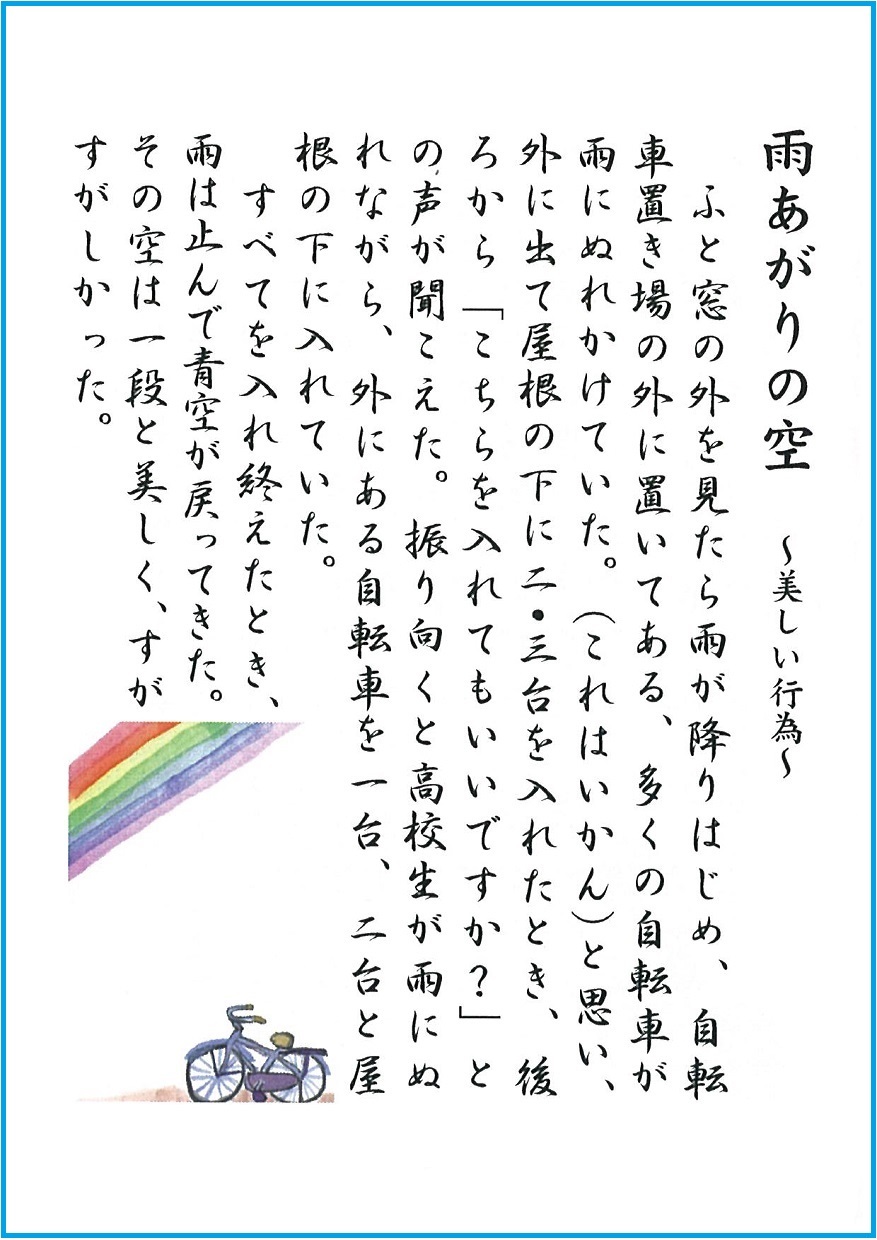 雨あがりの空　～美しい行為～
　ふと窓の外を見たら雨が降りはじめ、自転
車置き場の外に置いてある、多くの自転車が
雨にぬれかけていた。（これはいかん）と思い、
外に出て屋根の下に二・三台を入れたとき、後
ろから「こちらを入れてもいいですか？」と
の声が聞こえた。振り向くと高校生が雨にぬ
れながら、外にある自転車を一台、二台と屋
根の下に入れていた。
　すべてを入れ終えたとき、
雨は止んで青空が戻ってきた。
その空は一段と美しく、すが
すがしかった。